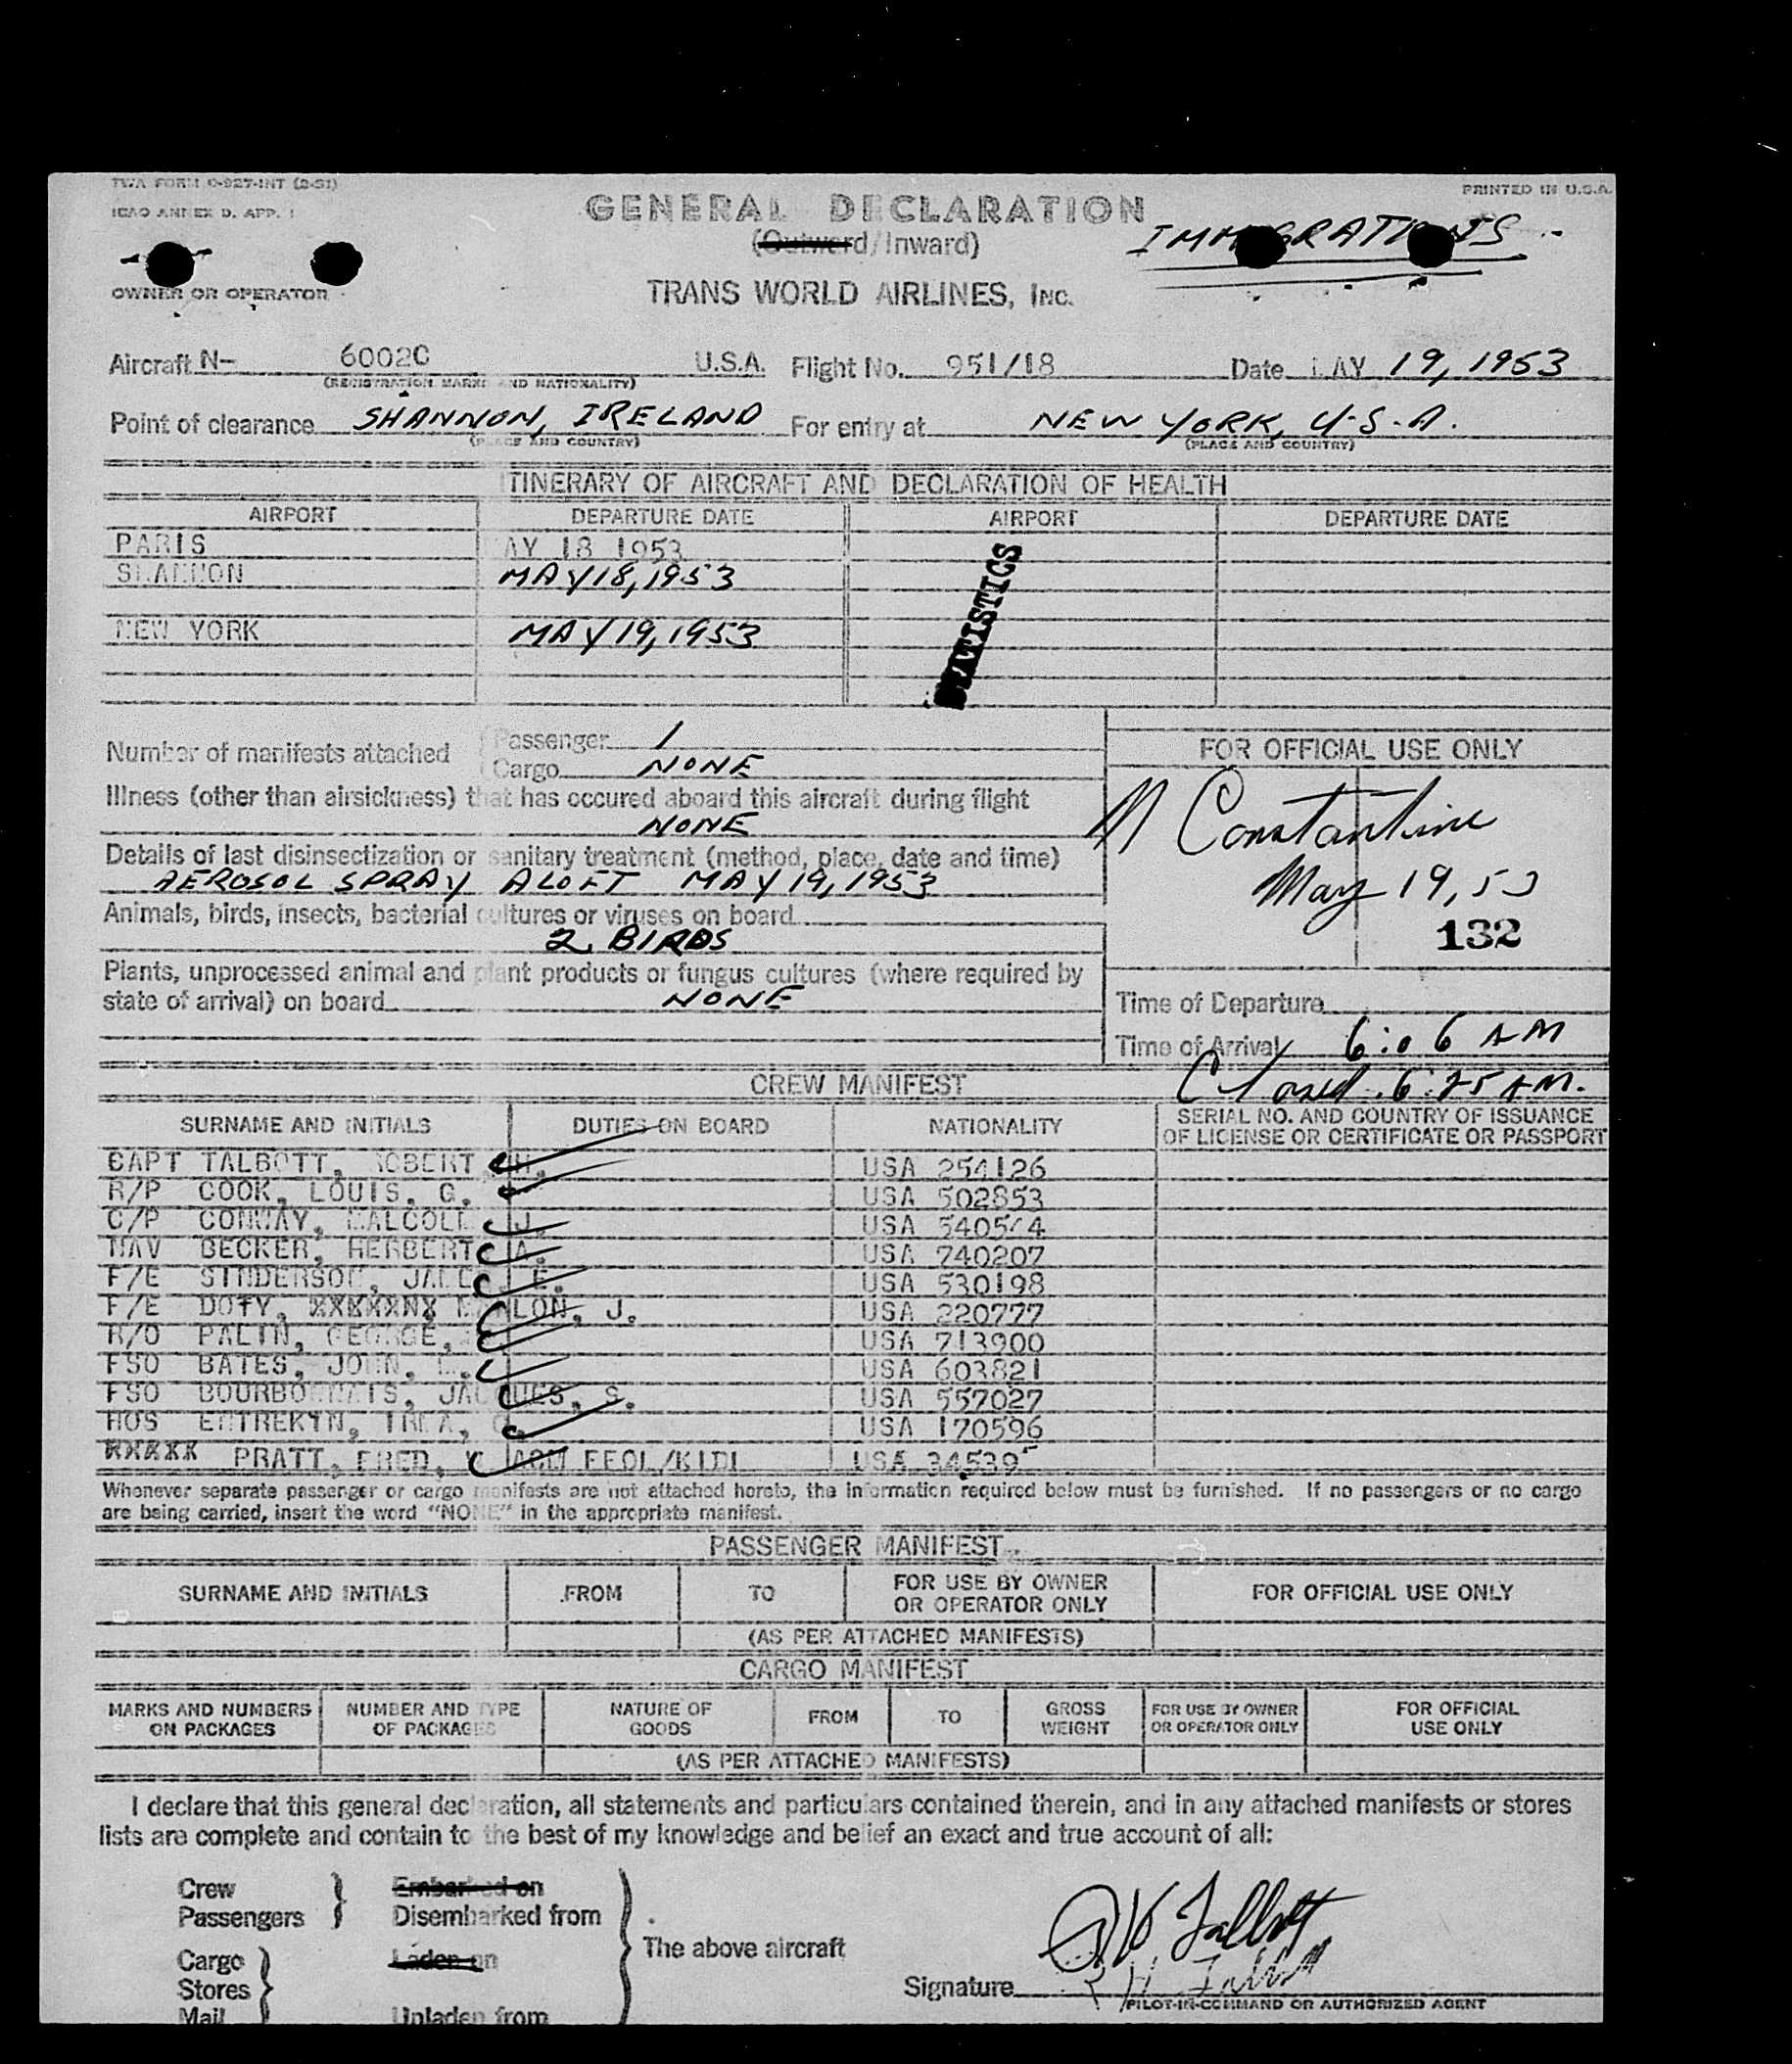 TWA FORM O-927-INT (2-51)
PRINTED IN U.S.A.
ICAO ANNEX D. APP. 1
GENERAL DECLARATION
(Outward/Inward)
IMMIGRATIONS
OWNER OR OPERATOR
TRANS WORLD AIRLINES, INC.
Aircraft N- 6002C U.S.A. Flight No. 951/18 Date MAY 19, 1953
(REGISTRATION MARKS AND NATIONALITY)
Point of clearance SHANNON, IRELAND For entry at NEW YORK, U.S.A.
(PLACE AND COUNTRY) (PLACE AND COUNTRY)
ITINERARY OF AIRCRAFT AND DECLARATION OF HEALTH
AIRPORT DEPARTURE DATE AIRPORT DEPARTURE DATE
PARIS AY 18 1953
SHANNON MAY 18, 1953
NEW YORK MAY 19, 1953
STATISTICS
Number of manifests attached
Passenger 1
Cargo NONE
FOR OFFICIAL USE ONLY
Illness (other than airsickness) that has occured aboard this aircraft during flight
NONE
N Constantine
May 19, 53
132
Details of last disinsectization or sanitary treatment (method, place, date and time)
AEROSOL SPRAY ALOFT MAY 19, 1953
Animals, birds, insects, bacterial cultures or viruses on board
2 BIRDS
Plants, unprocessed animal and plant products or fungus cultures (where required by
state of arrival) on board NONE
Time of Departure
Time of Arrival 6:06 AM
Closed 6:25 AM.
CREW MANIFEST
SURNAME AND INITIALS DUTIES ON BOARD NATIONALITY SERIAL NO. AND COUNTRY OF ISSUANCE
OF LICENSE OR CERTIFICATE OR PASSPORT
CAPT TALBOTT, ROBERT H. USA 254126
R/P COOK, LOUIS, G. USA 502853
C/P CONWAY, MALCOLM J. USA
NAV BECKER, HERBERT A. USA 740207
F/E SINDERSON, E. USA 530198
F/E DOTY, XXXXXNX J. USA 220777
R/O PALIN, GEORGE, USA 713900
FSO BATES, JOHN, USA 603821
FSO JACQUES, S. USA 557027
HOS ENTREKYN, USA 170596
XXXXX PRATT, FRED, ACM EEOL/KIDL USA 345395
Whenever separate passenger or cargo manifests are not attached hereto, the information required below must be furnished. If no passengers or no cargo
are being carried, insert the word "NONE" in the appropriate manifest.
PASSENGER MANIFEST
SURNAME AND INITIALS FROM TO FOR USE BY OWNER
OR OPERATOR ONLY FOR OFFICIAL USE ONLY
(AS PER ATTACHED MANIFESTS)
CARGO MANIFEST
MARKS AND NUMBERS
ON PACKAGES NUMBER AND TYPE
OF PACKAGES NATURE OF
GOODS FROM TO GROSS
WEIGHT FOR USE BY OWNER
OR OPERATOR ONLY FOR OFFICIAL
USE ONLY
(AS PER ATTACHED MANIFESTS)
I declare that this general declaration, all statements and particulars contained therein, and in any attached manifests or stores
lists are complete and contain to the best of my knowledge and belief an exact and true account of all:
Crew Embarked on
Passengers Disembarked from
The above aircraft
Cargo Laden on
Stores
Mail Unladen from
R H Talbott
Signature R H Talbott
PILOT-IN-COMMAND OR AUTHORIZED AGENT